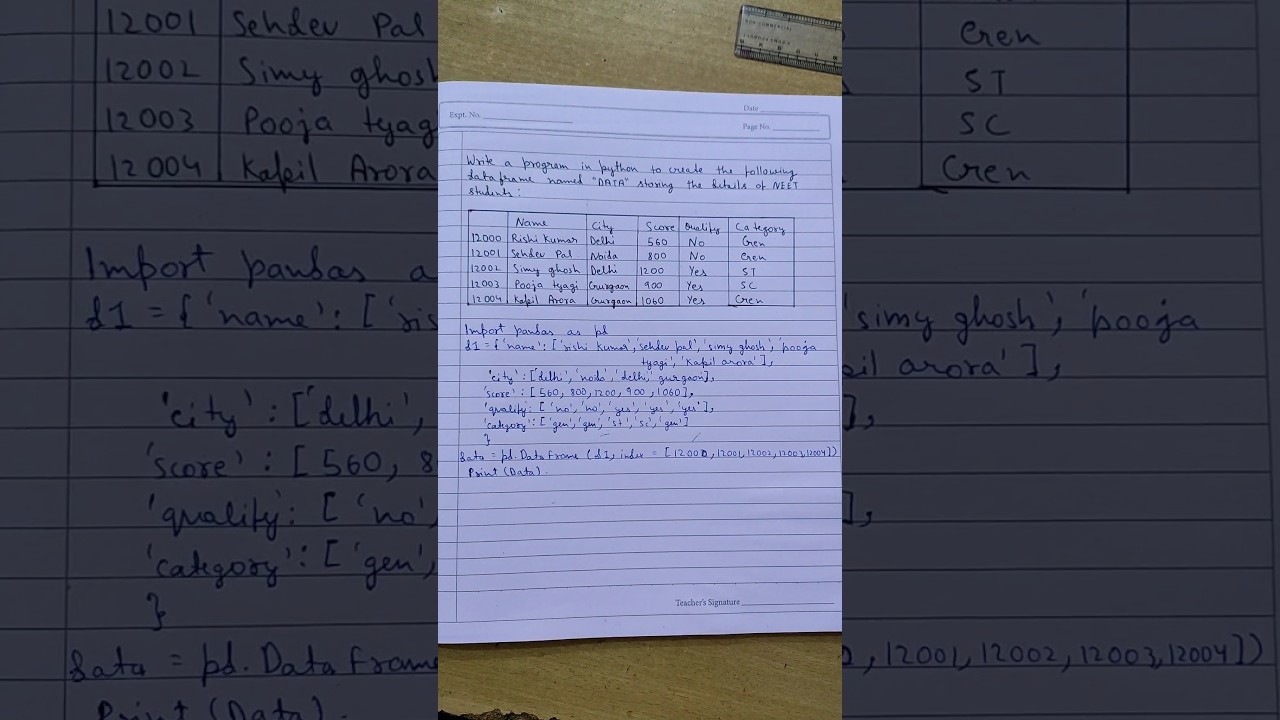 Expt. No.
Date
Page No.
Write a program in python to create the following
data frame named "DATA" storing the details of NEET
students:
Name City Score Qualify Category
12000 Rishi Kumar Delhi 560 No Gen
12001 Sehdev Pal Noida 800 No Gen
12002 Simy ghosh Delhi 1200 Yes ST
12003 Pooja tyagi Gurgaon 900 Yes SC
12004 Kapil Arora Gurgaon 1060 Yes Gen
Import pandas as pd
d1 = {'name': ['rishi kumar', 'sehdev pal', 'simy ghosh', 'pooja
tyagi', 'kapil arora'],
'city': ['delhi', 'noida', 'delhi', gurgaon],
'score': [560, 800, 1200, 900, 1060],
'qualify: ['no', 'no', 'yes', 'yes', 'yes'],
'category': ['gen', 'gen', 'st', 'sc', 'gen']
}
data = pd.DataFrame (d1, index = [12000, 12001, 12002, 12003, 12004])
Print (Data).
Teacher's Signature